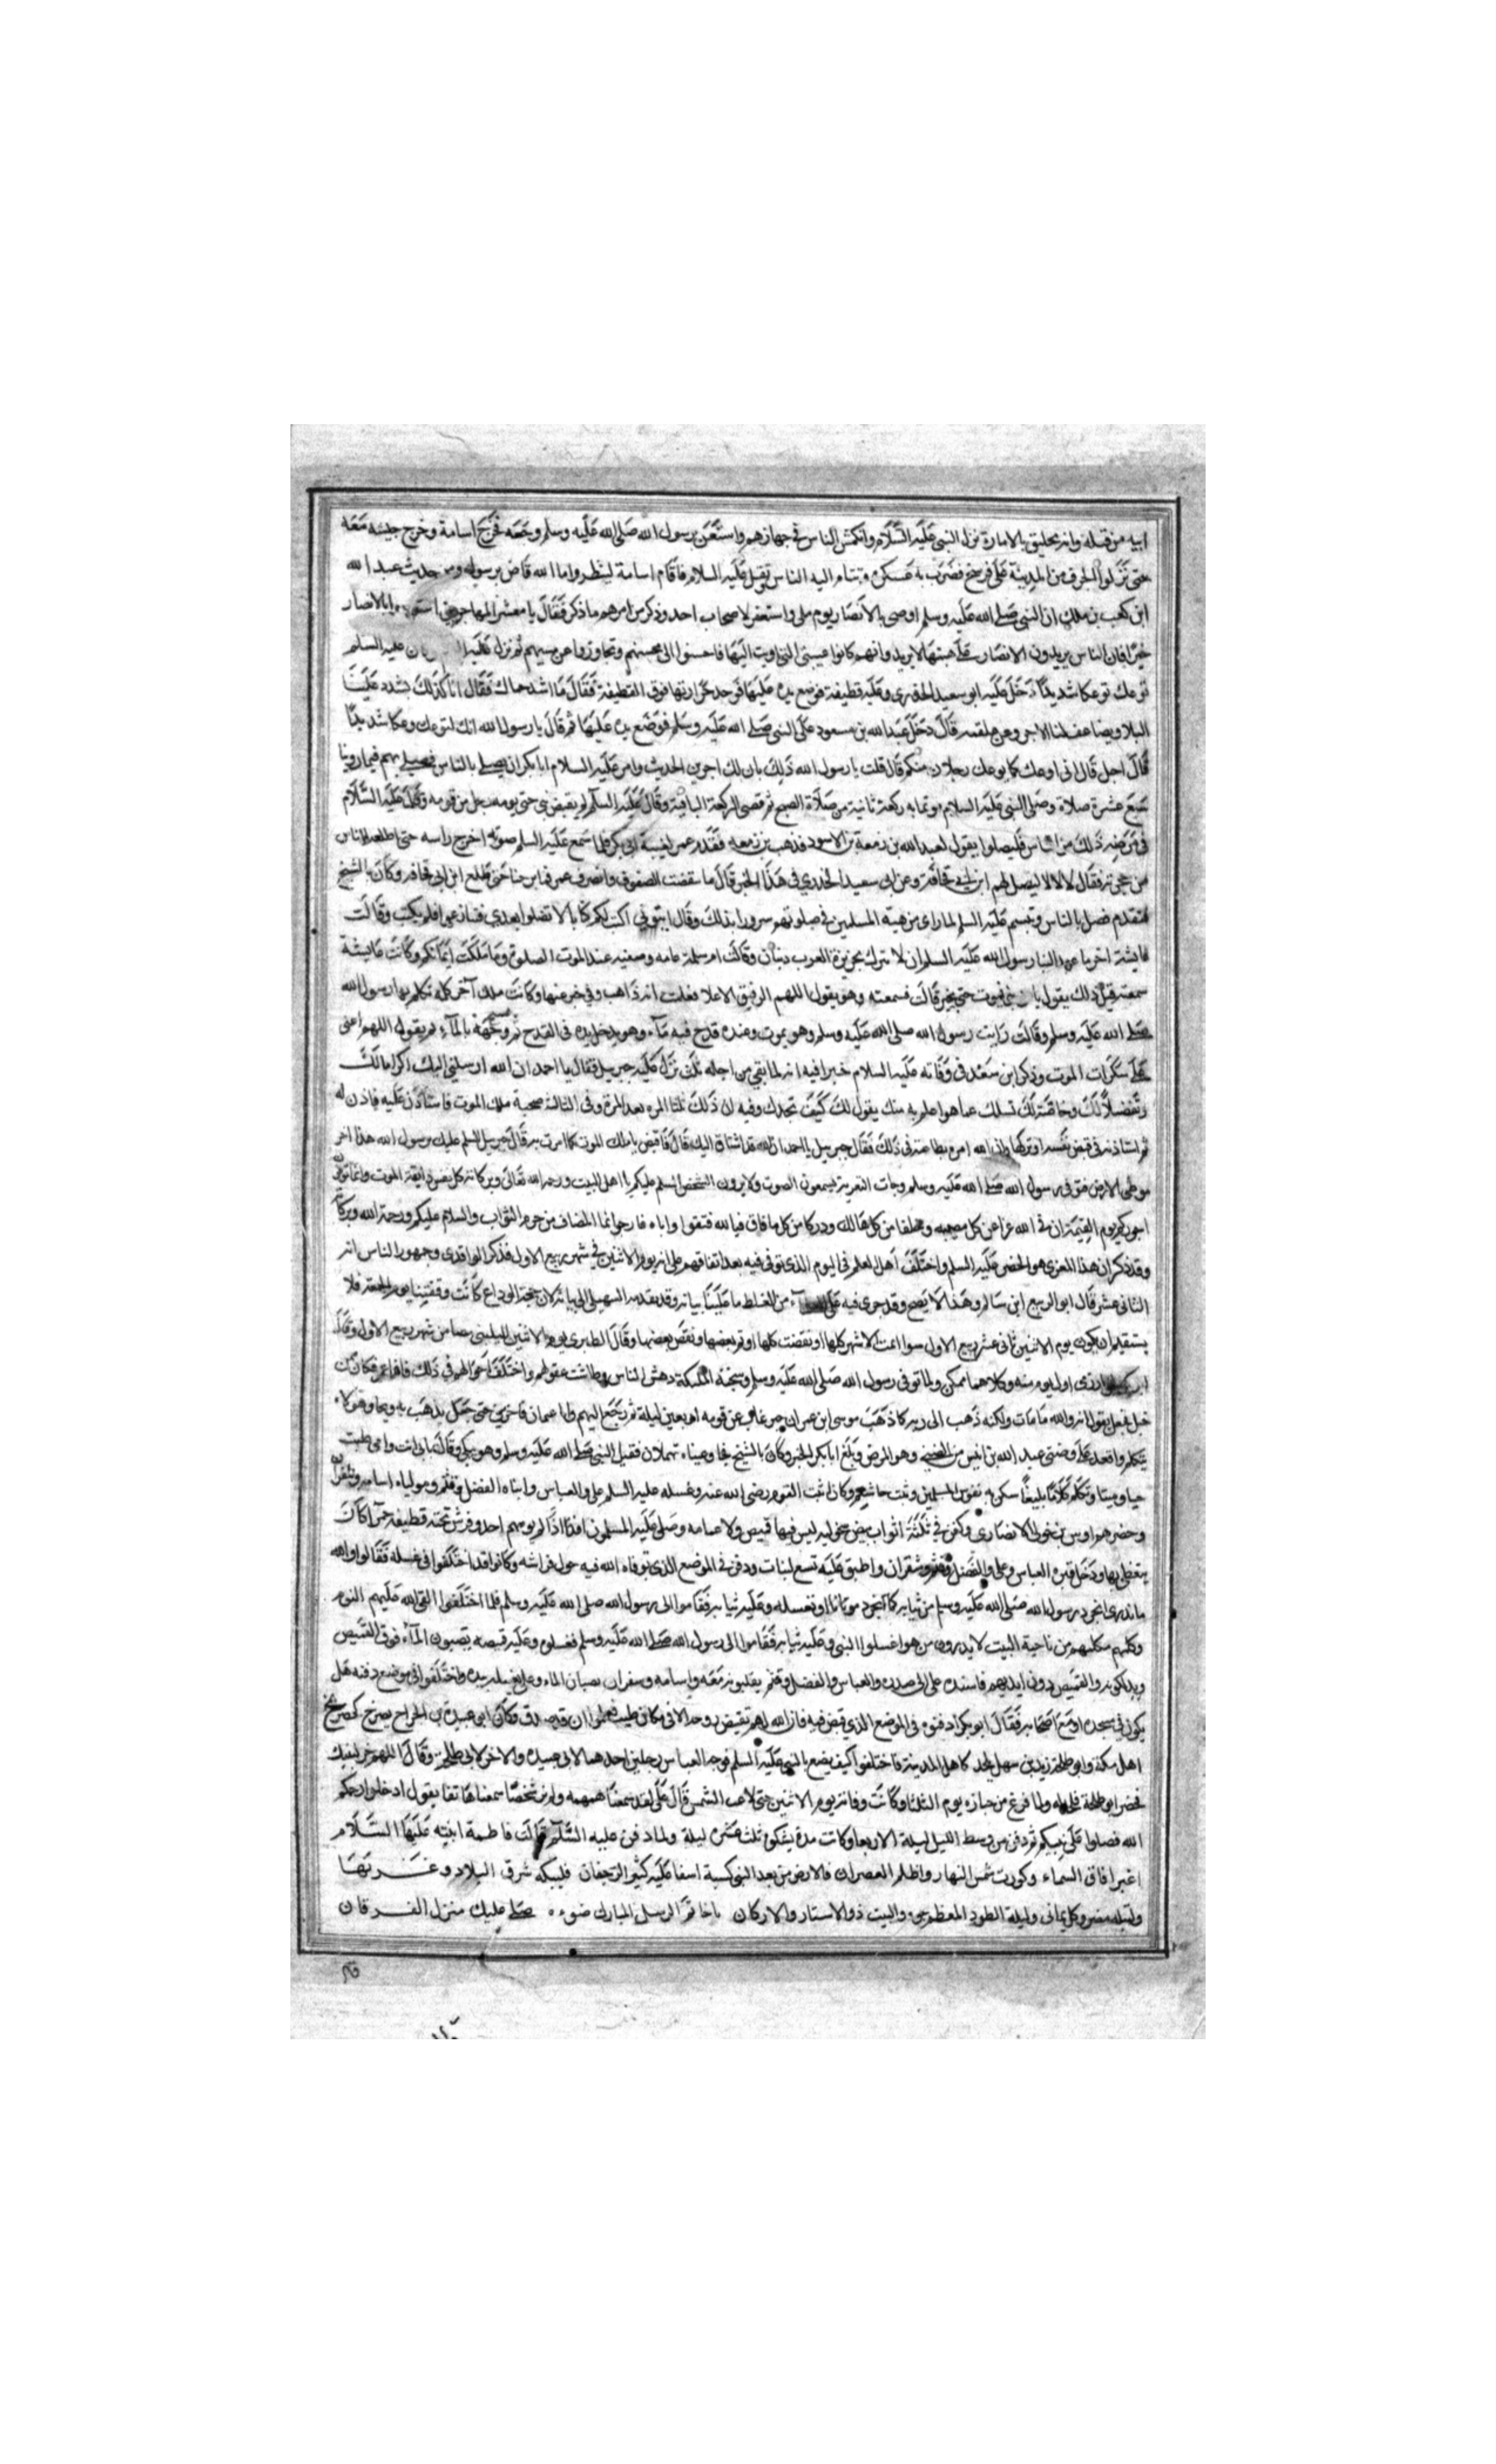 ابيه من قبله وانه لخليق بالامارة نزل النبي عَلَيه السَّلَام وانكمش الناس في جهازهم واستَعَز برسول الله صَلى الله عَلَيه وسلم وجَعه فخَرج اسامة وخرج جيشه مَعَه
حتى نَزَلوا الجرف من المدِينَة عَلى فرسخ فضَرَبَ به عَسكره وتتام اليه الناس وثقل عَلَيه السلام فاقَام اسامة لينظروا ما الله قاض برسوله ومن حديث عبد الله
ابن كعب بن ملك ان النبي صَلى الله عَلَيه وسلم اوصى بالانصَار يوم صلى واستغفر لاصحاب احد وذكر من امرهم ما ذكر فَقَالَ يا معشر المهاجرين استوصوا بالانصار
خيرًا فان الناس يزيدون والانصَار عَلى هيئتهَا لا يزيد وانهم كانوا عيبتى التى اويت اليَهَا فاحسنوا الى محسنهم وتجاوزوا عن مسيهم ثم نزل عَلَيه السلم
توعك توعكا شديدًا دَخَلَ عَلَيه ابو سعيد الخدرى وعَلَيه قطيفة فوضع يده عَلَيهَا فوجد حَرارتها فوق القطيفة فَقَالَ مَا اشد حماك فقَال انا كَذلكَ يشدد عَلَينَا
البلاء ويضاعف لنا الاجر وعن علقمه قَالَ دَخَلَ عَبد الله بن مسعود عَلَى النبي صَلى الله عَلَيه وسَلم فوَضَع يده عَلَيهَا ثم قَالَ يا رسول الله انك لتوعك وعكا شديدًا
قَالَ اجل قَال انى اوعك كما يوعك رجلان منكم قَال قلت يا رسول الله ذَلِكَ بان لك اجرين الحديث وامر عَلَيه السلام ابا بكر ان يصلى بالناس فصلى بهم فيما روينا
سَبعَ عشرة صلاة وصَلى النبي عَلَيه السلام موتما به ركعة ثانية من صَلَاة الصبح ثم قضى الركعة الباقية وقَالَ عَلَيه السلَم لم يقبض نبى حتى يومه رجل من قومه وقَالَ عَلَيه السَّلَام
فى مَرَضِه ذَلكَ مرُوا الناس فَليصلوا يقول لعبد الله بن زمعة بن الاسود فذهب بن زمعه فقَدم عمر لغيبة ابى بكر فلما سَمع عَلَيه السلم صوته اخرج راسه حتى اطلعه للناس
من حجرته فقَال لا لا لا ليصل لهم ابن ابى قحَافَة وعن ابى سعيد الخدري فى هَذا الخبر قَالَ ما نقضت الصفوف وانصرف عمر فما برحنا حَتى طلع ابن ابى قحافه وكَان بالسنح
فتقدم فصل بالناس وتبسم عَلَيه السلم لما راى من هيئة المسلمين فى صلوتهم سرورا بذلكَ وقَال ايتونى اكتب لكم كتابا لا تضلوا بعدي فتنازعوا فلم يكتب وقَالَت
عايشة اخر ما عهد الينا رسول الله عَلَيه السلم ان لا يترك بجزيرة العرب دينان وقَالَت ام سلمة عامه وصيته عند الموت الصلوة ومَا مَلكَت ايمَانكم وكَانَت عَايشة
سمعته قبل ذلك يقول ما من نبى يموت حتى يخير قَالَت فسمعته وهو يقول اللهم الرفيق الاعلا فعلمت انه ذَاهب وفى خبر عنها وكَانَت تلك آخر كلمه تكلم بها رسول الله
صَلى الله عَلَيه وسلم وقَالَت رَايت رسول الله صلى الله عَلَيه وسلم وهو يموت وعنده قدح فيه مَاء وهو يدخل يده فى القدح ثم يمسح وَجهَه بالمآء ثم يقول اللهم اعنى
عَلى سَكَرَات الموت وذكر ابن سَعد فى وَفَاته عَلَيه السلام خبرا فيه انه لما بقى من اجله ثلث نَزَل عَلَيه جبريل فقال يا احمد ان الله ارسلنى اليك اكراما لَكَ
وتَفضلًا لَكَ وخاصَّة لَكَ يسلك عما هو اعلم به منك يقول لكَ كَيفَ تجدك وفيه ان ذَلكَ ثلثا المرة بعد المرة وفى الثالثة صحبه ملك الموت فاستَاذَن عَليه فاذن له
ثم استاذنه فى قبض نَفسه او تركها وان الله امره بطاعته فى ذَلكَ فَقَال جبريل يا احمد ان الله قد اشتاق اليكَ قَالَ فَاقبض يا ملك الموت كما امرت به قَالَ جبريل السلم عليك يرسول الله هذا اخر
موطى الارض فتوفى رسول الله صَلى الله عَلَيه وسلم وجات التعزية يسمعون الصوت ولا يرون الشخص السلم عليكم يا اهل البيت ورحمة الله تعَالى وبركاته كل نفس ذايقة الموت وانما توفون
اجوركم يوم القيمة ان فى الله عزا عن كل مصيبه وخلفا من كل هَالك ودركا من كل ما فات فبالله فثقوا واياه فارجوا انما المصاب من حرم الثوَاب والسلام عليكم ورحمة الله وبركاته
وقد ذكر ان هَذا المعزى هو الخضر عَلَيه السلم واختَلَفَ اهل العلم فى اليوم الذى توفى فيه بعد اتفاقهم على انه يوم الاثنين فى شهر ربيع الاول فذكر الواقدى وجمهور الناس انه
الثانى عشر قَال ابو الربيع ابن سَالم وهَذا لا يَصح وقد جرى فيه عَلى من الغلط ما عَلَينَا بيانه وقد تقدمه السهيلى الى بيانه لان حجة الوداع كَانَت وقفتها يوم الجمعة فلا
يستقيم ان يكون يوم الاثنين ثانى عشر ربيع الاول سوا اتمت الاشهر كلها او نقضت كلها او تم بعضها ونقصَ بعضها وقَال الطبرى يوم الاثنين لليلتين مضتا من شهر ربيع الاول وقَالَ
اول يوم منه وكلاهما ممكن ولما توفى رسول الله صَلى الله عَلَيه وسلم وسجته الملَائكة دهش الناس وطَاشت عقولهم واختَلَفَت احوَالهم فى ذَلكَ فاما عمر فكان ممن
خبل فجعل يقول انه والله مَا مَات ولكنه ذَهب الى ربه كما ذَهَبَ موسى ابن عمران حين غاب عن قومه اربعين ليلة ثم رَجَعَ اليهم واما عثمان فاخرس حتى جعَل يذهَب به ويجا وهو لا
يتكلم واقعد عَلى وضنى عبد الله بن انيس من الضنى وهو المرض وبَلَغَ ابا بكر الخبر وكَان بالسنح فجا وعيناه تهملان فقبل النبى صَلى الله عَلَيه وسلم وهو يبكى وقَالَ بابى انت وامى طبت
حيا وميتا وتَكَلم كَلَامًا بليغًا سكن به نفوس المسلمين وثبت جاشهم وكان اثبت القوم رضى الله عنه وغسله عليه السلم على والعباس وابناه الفضل وقثم وموليَاه اسامه وشقران
وحضرهم اوس بن خولى الانصَارى وكفن فى ثَلثَة اثواب بيض سحوليه ليس فيها قميص ولا عمامه وصَلى عَلَيه المسلمون افذاذًا لم يومهم احد وفرش تحته قطيفة حمرا كَانَ
يتغطى بها ودَخَل قبره العباس وعلى والفَضل وقثم وشقران واطبق عَلَيه تسع لبنات ودفن فى الموضع الذى توفاه الله فيه حول فراشه وكَانوا قد اختَلَفوا فى غسله فَقَالوا والله
ماندرى انجرد رسول الله صَلى الله عَلَيه وسلم من ثيابه كما نجرد موتانا او نغسله وعَلَيه ثيابه فَقَاموا الى رسول الله صلى الله عَلَيه وسلم فلما اختَلَفوا القى الله عَلَيهم النوم
وكلمهم مكلمهم من ناحية البيت لا يدرون من هو اغسلوا النبى وعَلَيه ثيابه فَقَاموا الى رسول الله صَلى الله عَلَيه وسلم فغسلوه وعَلَيه قميصه يصبون المآء فوق القميص
ويدلكونه والقميص دون ايديهم فاسنده على الى صدره والعباس والفضل وقثم يقلبونه مَعَه واسامه وسقران يصبان الماء وعلى يغسله بيده واختَلَفوا فى موضع دفنه هَل
يكون فى مسجده او مَع اصحَابه فَقَالَ ابو بكر ادفنوه فى الموضع الذى قبض فيه فان الله لم يقبض روحه الا فى مكان طيب فعلموا ان قد صدق وكان ابو عبيدة بن الجراح يضرح كضريح
اهل مكة وابو طلحه زيد بن سهل يلحد كاهل المدينة فاختلفوا كيف يصنع بالنبى عَلَيه السلم فوجه العباس رجلين احدهما لابى عبيده والاخر لابى طلحه وقَالَ اللهم خر لنبيك
فحضر ابو طلحة فلحد له ولما فرغ من جهازه يوم الثلثا وكَانَت وفاته يوم الاثنين حتى زاغت الشمس قَالَ عَلى لقد سمعنَا همهمه ولم نر شخصًا سمعنا هَاتفا يقول ادخلوا رحمكم
الله فصلوا عَلى نبيكم ثم دفن من وسط الليل ليلة الاربعا وكَانت مدة يشكوى ثلث عَشرة ليلة ولما دفن عليه السَّلَم قَالَت فاطمة ابنته عَلَيهَا السَّلَام
اغبر افاق السماء وكورت شمس النهار واظلم العصران فالارض من بعد النبى كئيبة اسفا عَلَيه كثيرة الرجفان فليبكه شرق البلاد وغَربهَا
ولتبكه مضر وكل يمانى وليبكه الطود المعظم جوه والبيت ذو الاستار والاركان يا خاتم الرسل المبارك ضوءه صَلى عليك منزل الفرقان